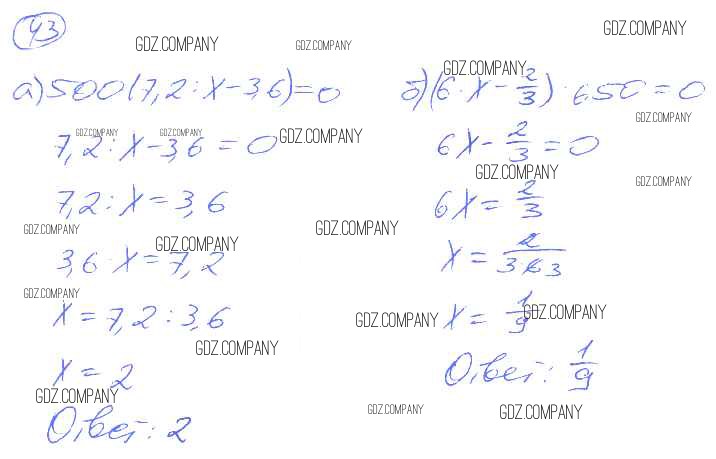 43
GDZ.COMPANY GDZ.COMPANY GDZ.COMPANY
а) 500(7,2 : x - 3,6) = 0
7,2 : x - 3,6 = 0
7,2 : x = 3,6
3,6 · x = 7,2
x = 7,2 : 3,6
x = 2
Ответ: 2
GDZ.COMPANY
б) (6 · x - 2/3) · 650 = 0
6x - 2/3 = 0
6x = 2/3
x = 1/9
Ответ: 1/9
GDZ.COMPANY GDZ.COMPANY GDZ.COMPANY
GDZ.COMPANY
GDZ.COMPANY GDZ.COMPANY
GDZ.COMPANY GDZ.COMPANY GDZ.COMPANY
GDZ.COMPANY
GDZ.COMPANY GDZ.COMPANY
GDZ.COMPANY
GDZ.COMPANY
GDZ.COMPANY GDZ.COMPANY